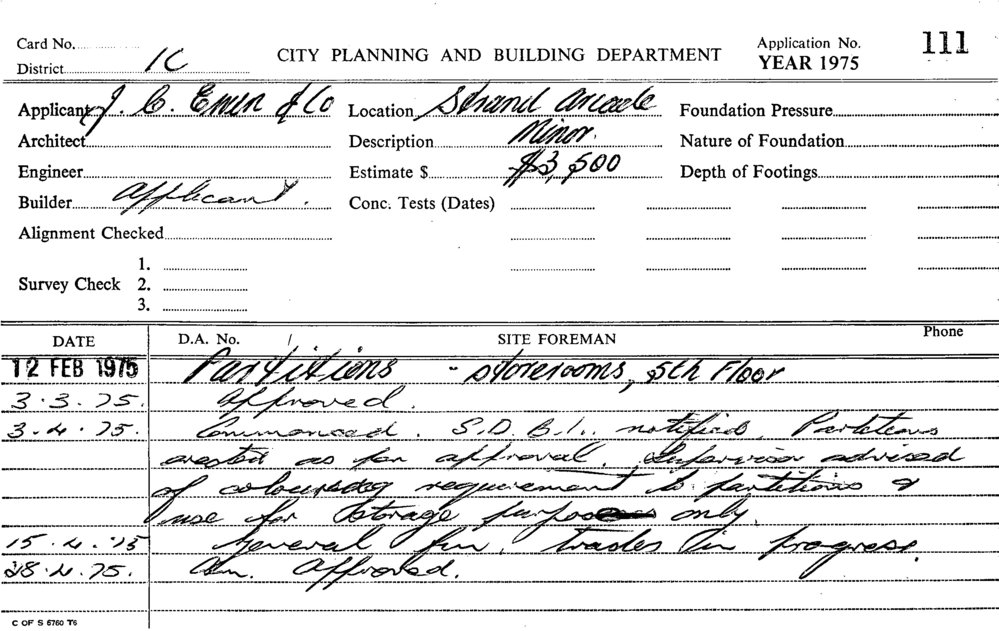 Card No.
District 1C
CITY PLANNING AND BUILDING DEPARTMENT
Application No. 111
YEAR 1975
Applicant J. C. & Co Location Strand Arcade Foundation Pressure
Architect Description Minor. Nature of Foundation
Engineer Estimate $ $3,500 Depth of Footings
Builder Applicant. Conc. Tests (Dates)
Alignment Checked
1.
Survey Check 2.
3.
DATE D.A. No. / SITE FOREMAN Phone
12 FEB 1975 Partitions - storerooms, 5th Floor
3.3.75. Approved.
3.4.75. Commenced. S.D.B.I. notified. Partitions
erected as per approval. Supervisor advised
of requirement to partitions &
use for storage purposes only.
15.4.75 General fin. trades in progress.
28.4.75. Approved.
C OF S 6760 T6